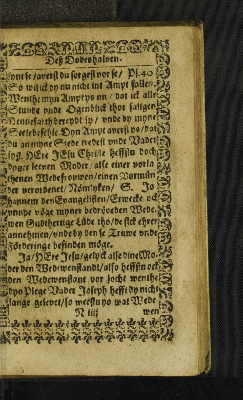 Deß Dodeshalven.
vont se / averst du sorgest vor se / Ps. 40
So wil ick dy nu nicht int Ampt fallen.
Wenthe myn Ampt ys nu / dat ick alle
Stunde unde Ogenblick thor saligen
Hennefarth bereydt sy / unde dy myne
Seele befehle. Dyn Ampt averst ys / dat
du an myne Stede tredest unde Vader
syst. HEre JEsu Christe heffstu doch
dyner leeven Moder / alse einer vorla
tenen Wedefrouwen / einen Vormün
der verordenet / Nömlyken / S. Jo
hannem den Evangelisten / Erwecke och
unde vöge myner bedröveden Wede-
wen Gudthertige Lüde tho / de sick ehrer
annehmen / unde by den se Truwe unde
Förderinge befinden möge.
Ja / HEre Jesu / gelyck alse dine Mo-
der den Wedewenstandt / also heffstu och
den Wedewenstant vor socht wenthe
dyn Plege Vader Joseph hefft dy nicht
lange gelevet / so weestu yo wat Wede
N iiij
wen